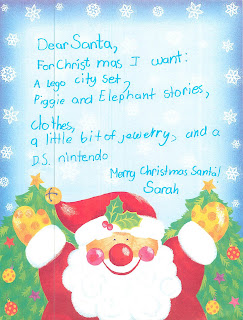 Dear Santa,
For Christmas I want:
A Lego city set,
Piggie and Elephant stories,
clothes,
a little bit of jewelry, and a
D.S. nintendo
Merry Christmas Santa!
Sarah